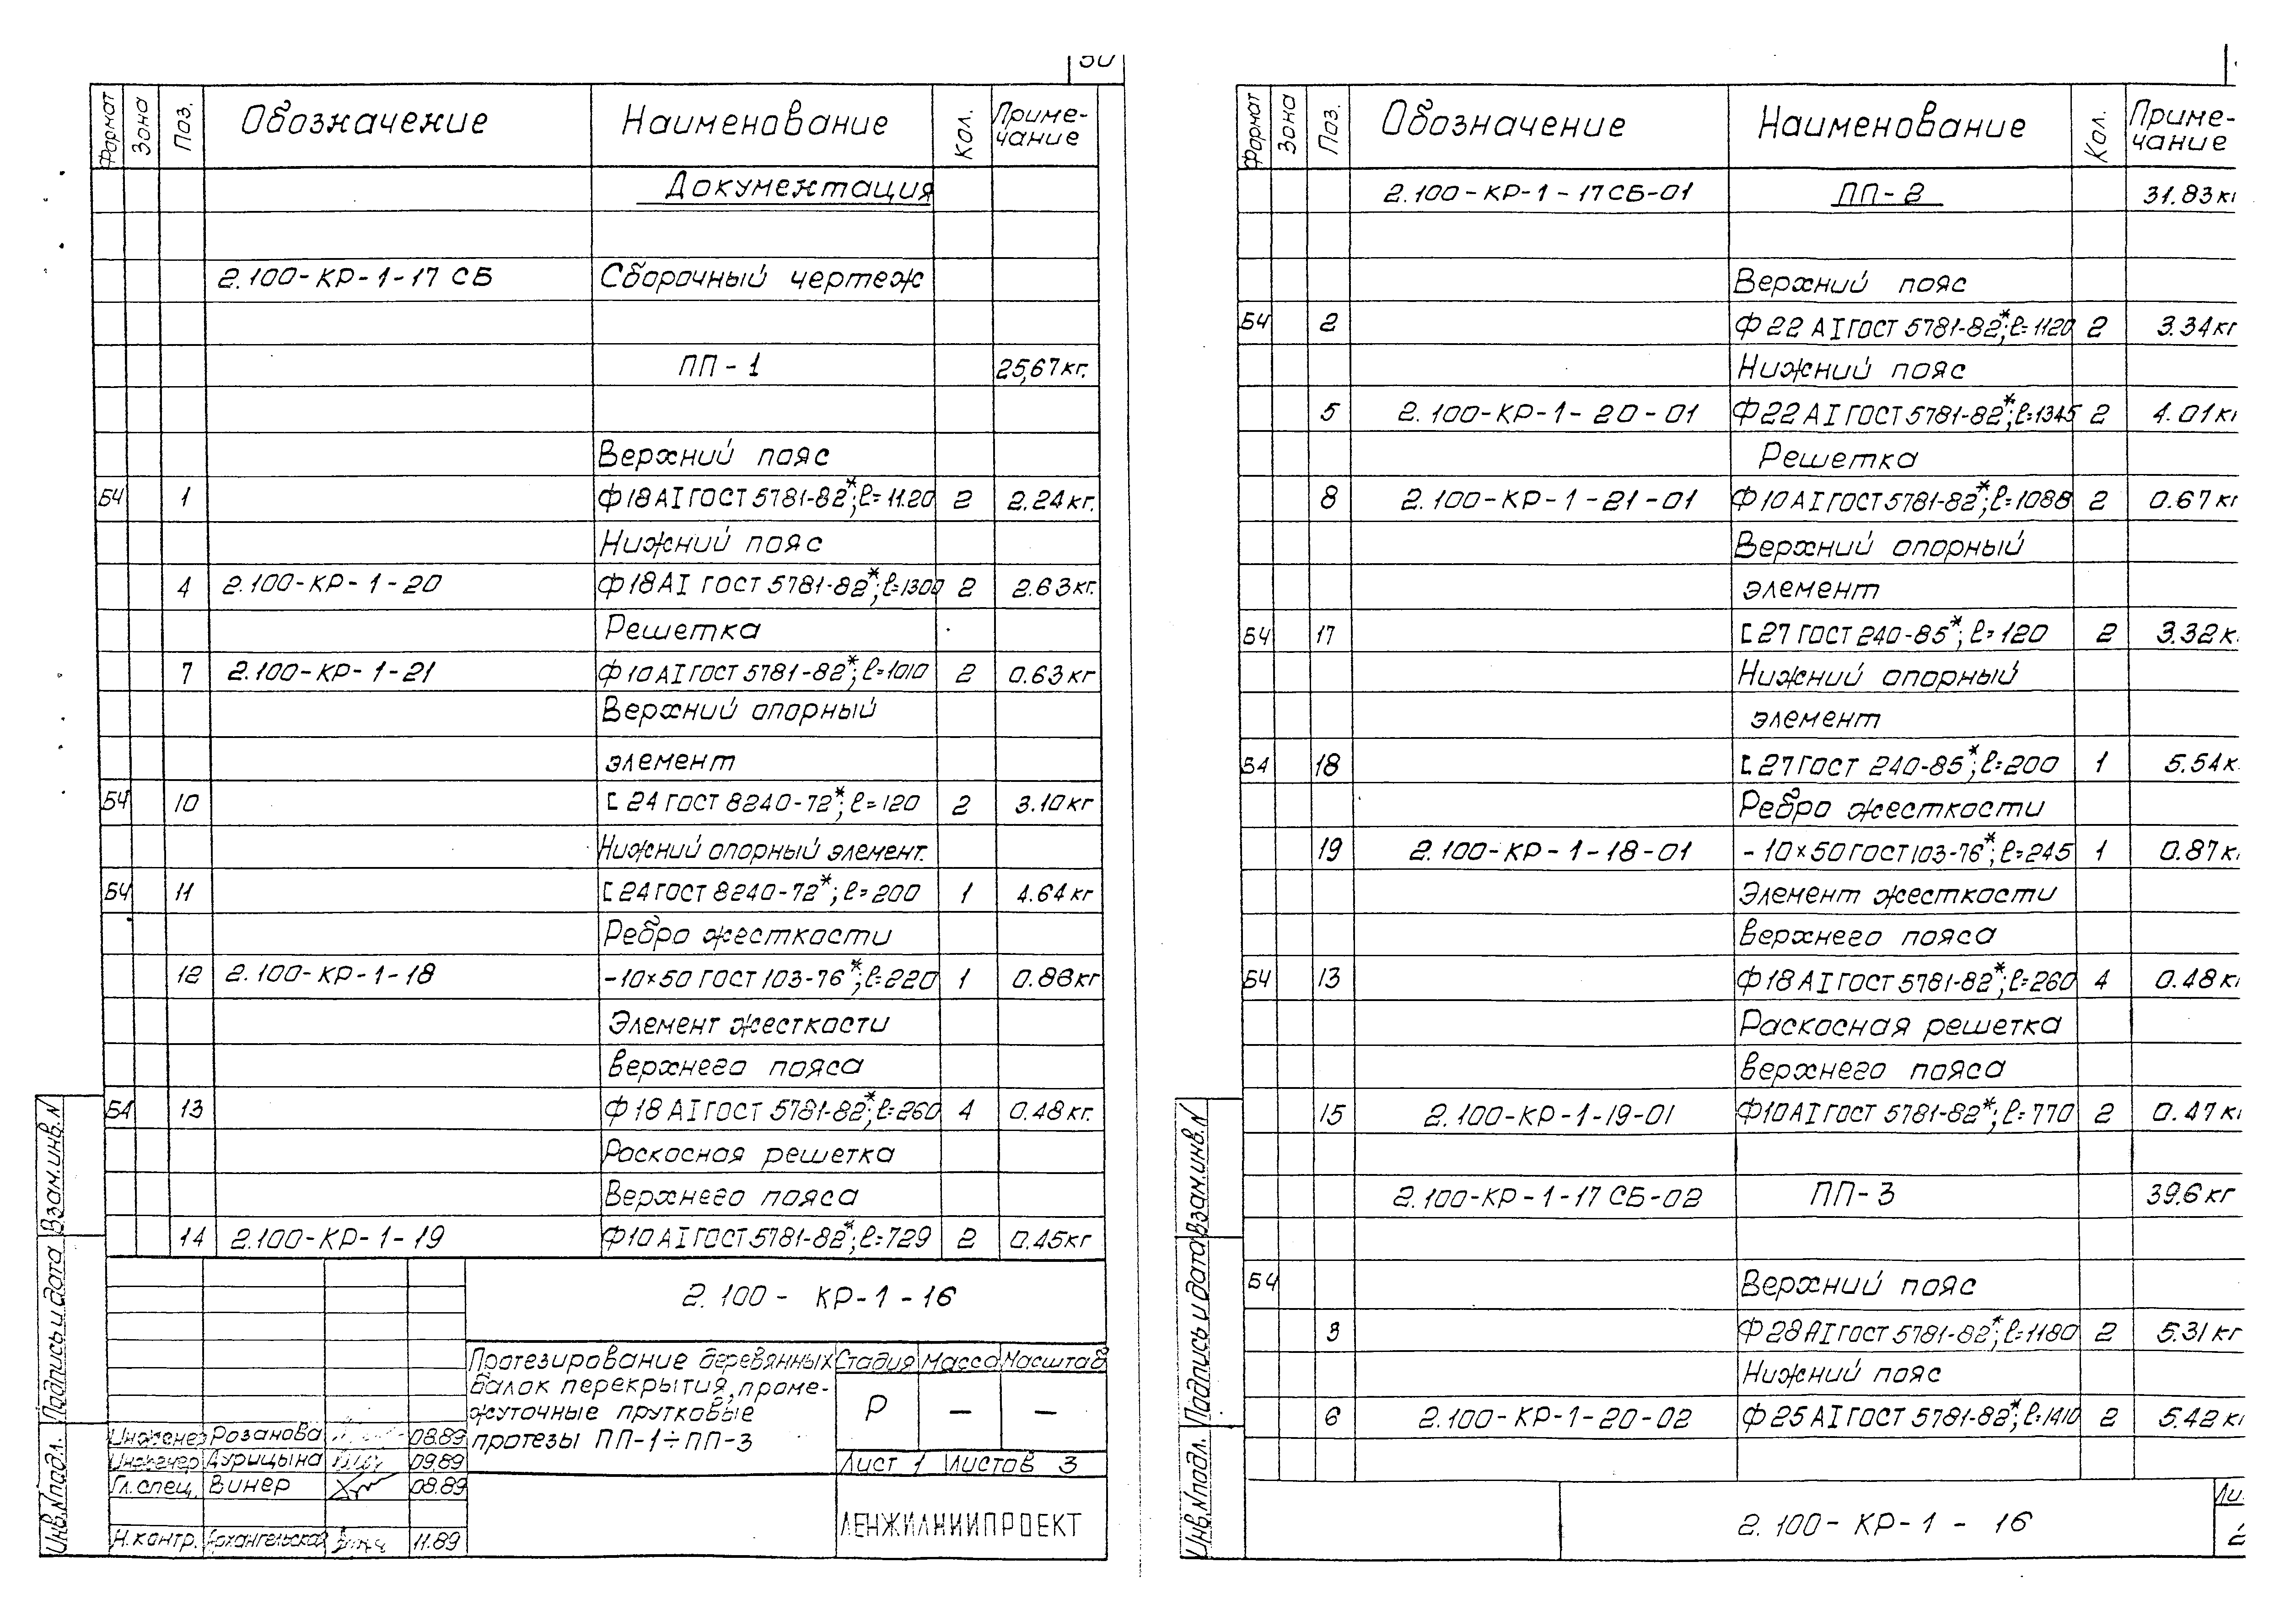 50
Формат Зона Поз. Обозначение Наименование Кол. Приме-
чание
Документация
2.100-КР-1-17 СБ Сборочный чертеж
ПП-1 25,67кг.
Верхний пояс
БЧ 1 Ф18АI ГОСТ 5781-82*; ℓ=1120 2 2.24кг.
Нижний пояс
4 2.100-КР-1-20 Ф18АI ГОСТ 5781-82*; ℓ=1300 2 2.63кг.
Решетка
7 2.100-КР-1-21 Ф10АI ГОСТ 5781-82*; ℓ=1010 2 0.63кг
Верхний опорный
элемент
БЧ 10 [ 24 ГОСТ 8240-72*; ℓ=120 2 3.10кг
Нижний опорный элемент.
БЧ 11 [ 24 ГОСТ 8240-72*; ℓ=200 1 4.64кг
Ребро жесткости
12 2.100-КР-1-18 -10×50 ГОСТ 103-76*; ℓ=220 1 0.86кг
Элемент жесткости
верхнего пояса
БЧ 13 Ф18АI ГОСТ 5781-82*; ℓ=260 4 0.48кг.
Раскосная решетка
Верхнего пояса
14 2.100-КР-1-19 Ф10АI ГОСТ 5781-82*; ℓ=729 2 0.45кг
2.100- КР-1-16
Протезирование деревянных
балок перекрытия, проме-
жуточные прутковые
протезы ПП-1÷ПП-3
Стадия Масса Масштаб
Р — —
Лист 1 Листов 3
ЛЕНЖИЛНИИПРОЕКТ
Инженер Розанова 08.89
Инженер Аурицына 09.89
Гл.спец. Винер 08.89
Н.контр. Архангельская 11.89
Взам.инв.N
Подпись и дата
Инв.Nподл.
Формат Зона Поз. Обозначение Наименование Кол. Приме-
чание
2.100-КР-1-17СБ-01 ПП-2 31.83кг
Верхний пояс
БЧ 2 Ф22 АI ГОСТ 5781-82*; ℓ=1120 2 3.34кг
Нижний пояс
5 2.100-КР-1-20-01 Ф22АI ГОСТ 5781-82*; ℓ=1345 2 4.01кг
Решетка
8 2.100-КР-1-21-01 Ф10АI ГОСТ 5781-82*; ℓ=1088 2 0.67кг
Верхний опорный
элемент
БЧ 17 [ 27 ГОСТ 240-85*; ℓ=120 2 3.32к
Нижний опорный
элемент
БЧ 18 [ 27 ГОСТ 240-85*; ℓ=200 1 5.54к
Ребро жесткости
19 2.100-КР-1-18-01 -10×50 ГОСТ 103-76*; ℓ=245 1 0.87к
Элемент жесткости
верхнего пояса
БЧ 13 Ф18АI ГОСТ 5781-82*; ℓ=260 4 0.48кг
Раскосная решетка
верхнего пояса
15 2.100-КР-1-19-01 Ф10АI ГОСТ 5781-82*; ℓ=770 2 0.47кг
2.100-КР-1-17 СБ-02 ПП-3 39.6кг
БЧ Верхний пояс
3 Ф28АI ГОСТ 5781-82*; ℓ=1180 2 5.31кг
Нижний пояс
6 2.100-КР-1-20-02 Ф25АI ГОСТ 5781-82*; ℓ=1410 2 5.42кг
2.100-КР-1-16
Ли
2
Взам.инв.N
Подпись и дата
Инв.Nподл.